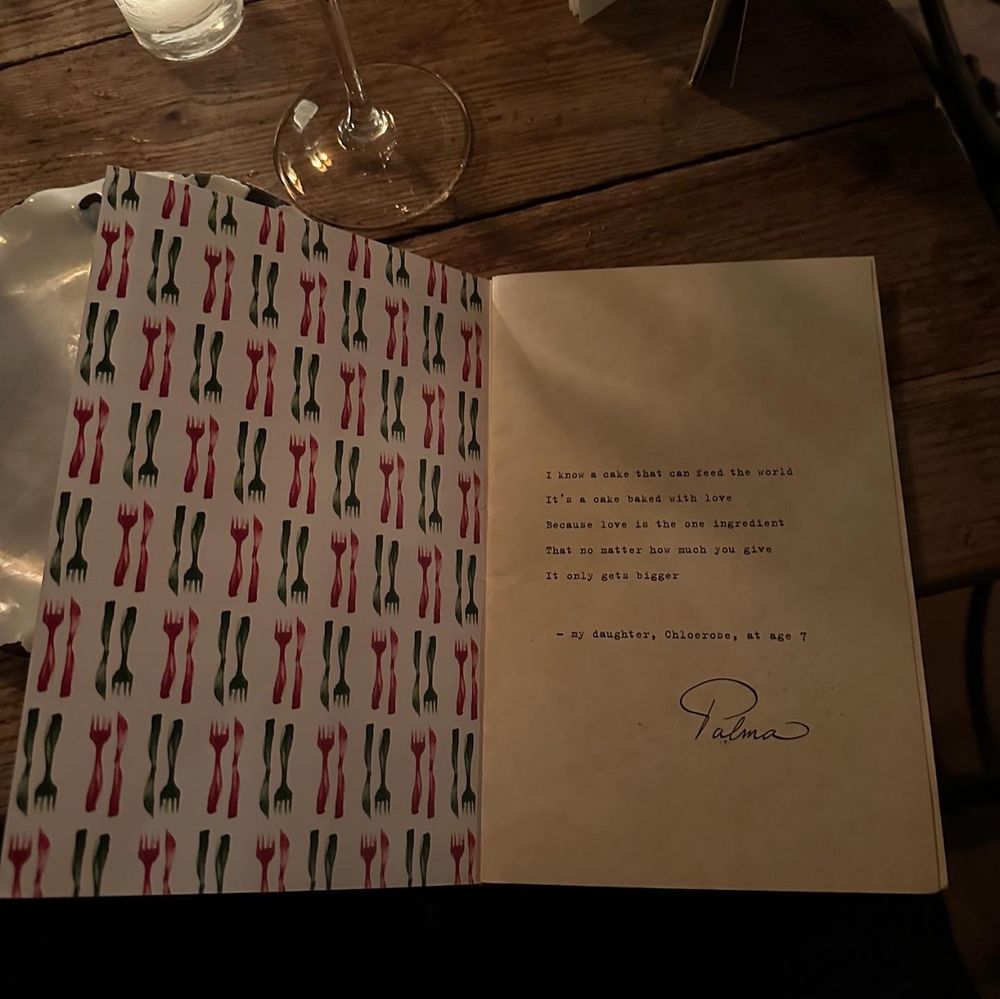 I know a cake that can feed the world
It's a cake baked with love
Because love is the one ingredient
That no matter how much you give
It only gets bigger
– my daughter, Chloerose, at age 7
Palma